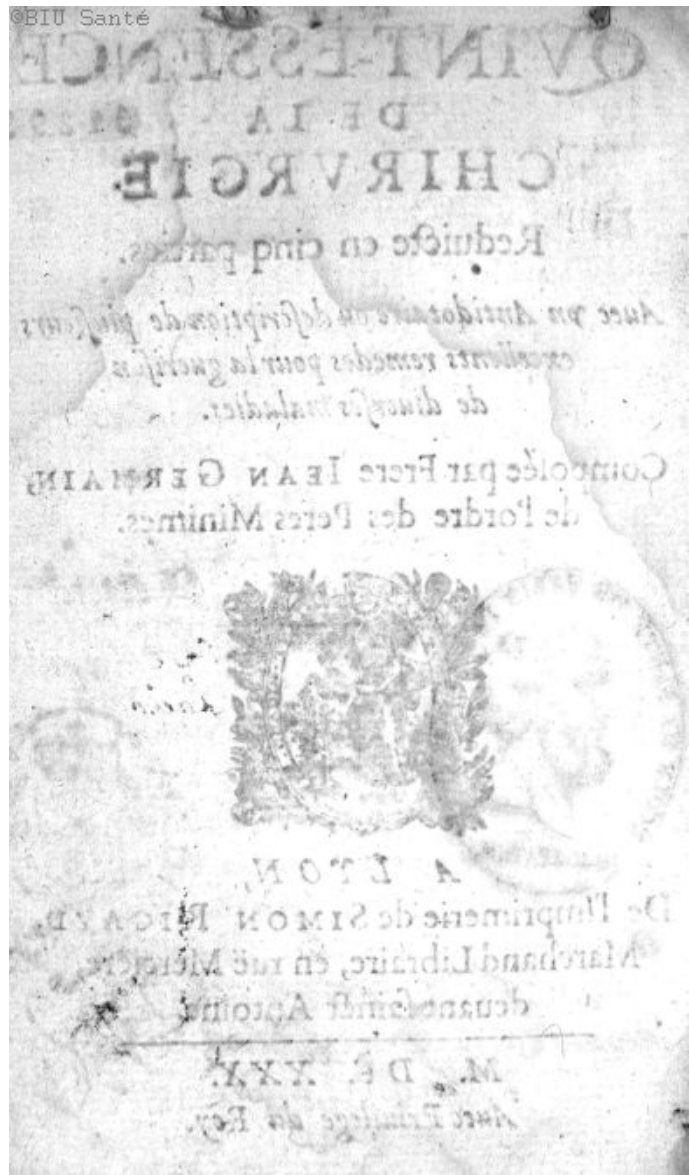 ©BIU Santé
QVINT-ESSENCE
DE LA
CHIRVRGIE.
Reduicte en cinq parties.
Auec vn Antidotaire ou description de plusieurs
excellents remedes pour la guerison
de diuerses maladies.
Composée par Frere IEAN GERMAIN,
de l'ordre des Peres Minimes.
A LYON,
De l'Imprimerie de SIMON RIGAVD,
Marchand Libraire, en ruë Merciere,
deuant sainct Antoine
M. DC. XXX.
Auec Priuilege du Roy.